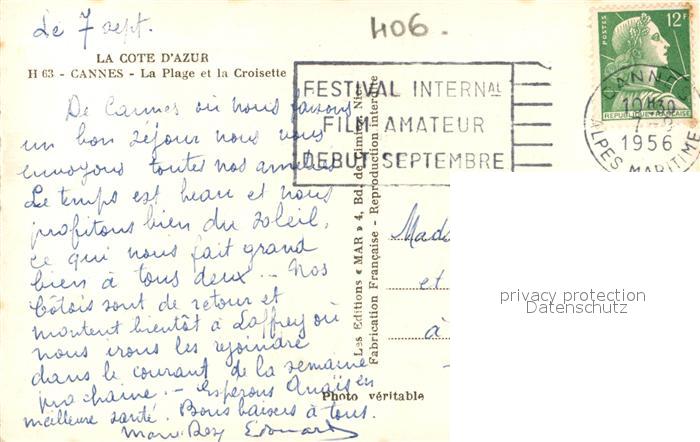 Le 7 sept.
406.
LA COTE D'AZUR
H 63 - CANNES - La Plage et la Croisette
De Cannes où nous faisons
un bon séjour nous vous
envoyons toutes nos amitiés
Le temps est beau et nous
profitons bien du soleil,
ce qui nous fait grand
bien à tous deux - Nos
sont de retour et
montent bientôt à Laffrey où
nous irons les rejoindre
dans le courant de la semaine
prochaine. - Espérons Anaïs en
meilleure santé. Bons baisers à tous.
Edouard
FESTIVAL INTERNAL
FILM AMATEUR
DEBUT SEPTEMBRE
POSTES
12F
REPUBLIQUE FRANÇAISE
CANNES
10H30
7-9
1956
ALPES MARITIMES
Les Editions « MAR » 4, Bd. de Cimiez, Nice
Fabrication Française - Reproduction interdite
Mada
et
à
privacy protection
Datenschutz
Photo véritable